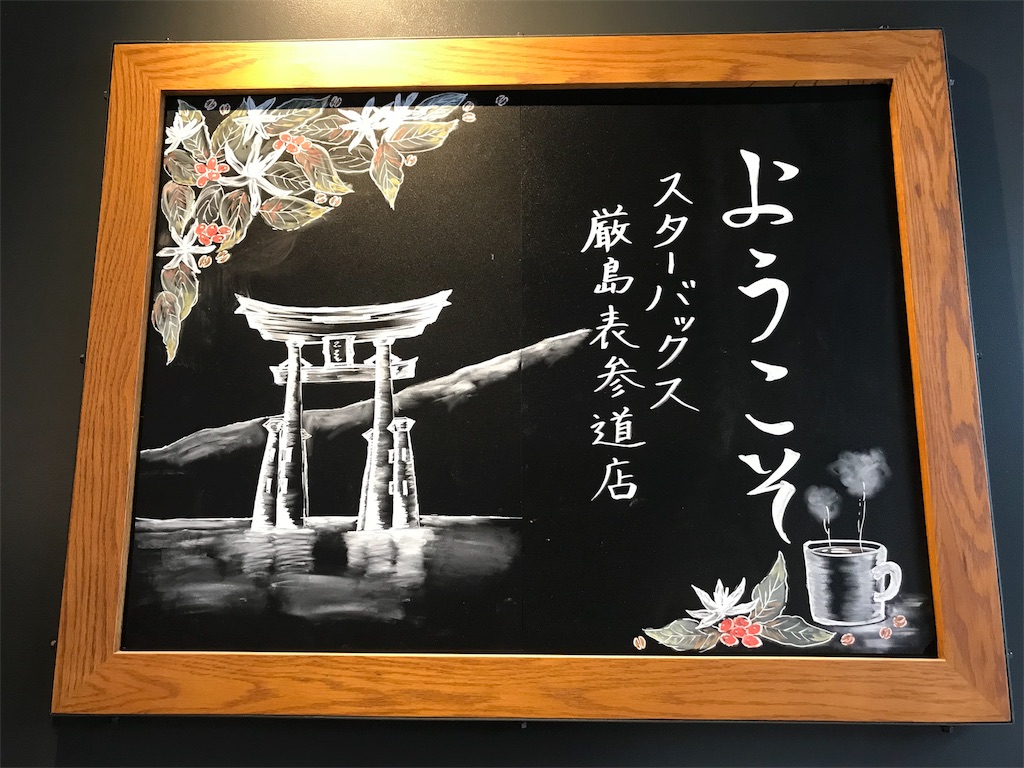 ようこそ
スターバックス
厳島表参道店